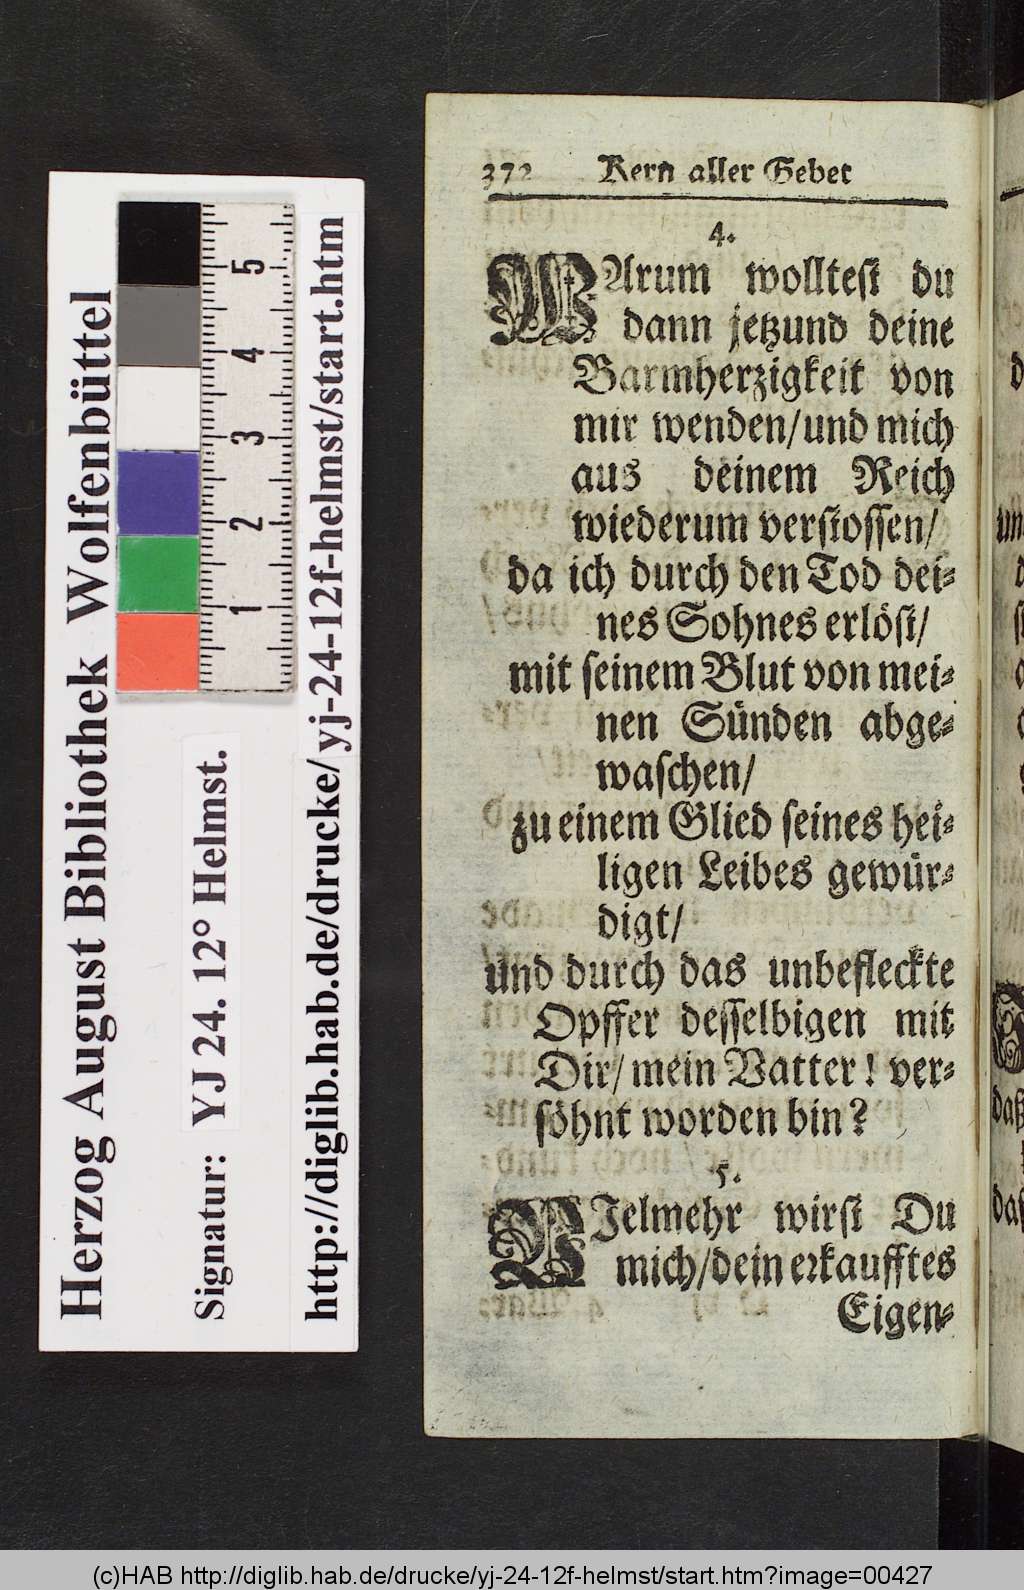 372 Kern aller Gebet
4.
WArum wolltest du
dann jetzund deine
Barmherzigkeit von
mir wenden/und mich
aus deinem Reich
wiederum verstossen/
da ich durch den Tod dei-
nes Sohnes erlöst/
mit seinem Blut von mei-
nen Sünden abge-
waschen/
zu einem Glied seines hei-
ligen Leibes gewür-
digt/
und durch das unbefleckte
Opffer desselbigen mit
Dir/ mein Vatter! ver-
söhnt worden bin?
5.
VIelmehr wirst Du
mich/dein erkaufftes
Eigen-
Herzog August Bibliothek Wolfenbüttel
Signatur: YJ 24. 12° Helmst.
http://diglib.hab.de/drucke/yj-24-12f-helmst/start.htm
1 2 3 4 5
(c)HAB http://diglib.hab.de/drucke/yj-24-12f-helmst/start.htm?image=00427